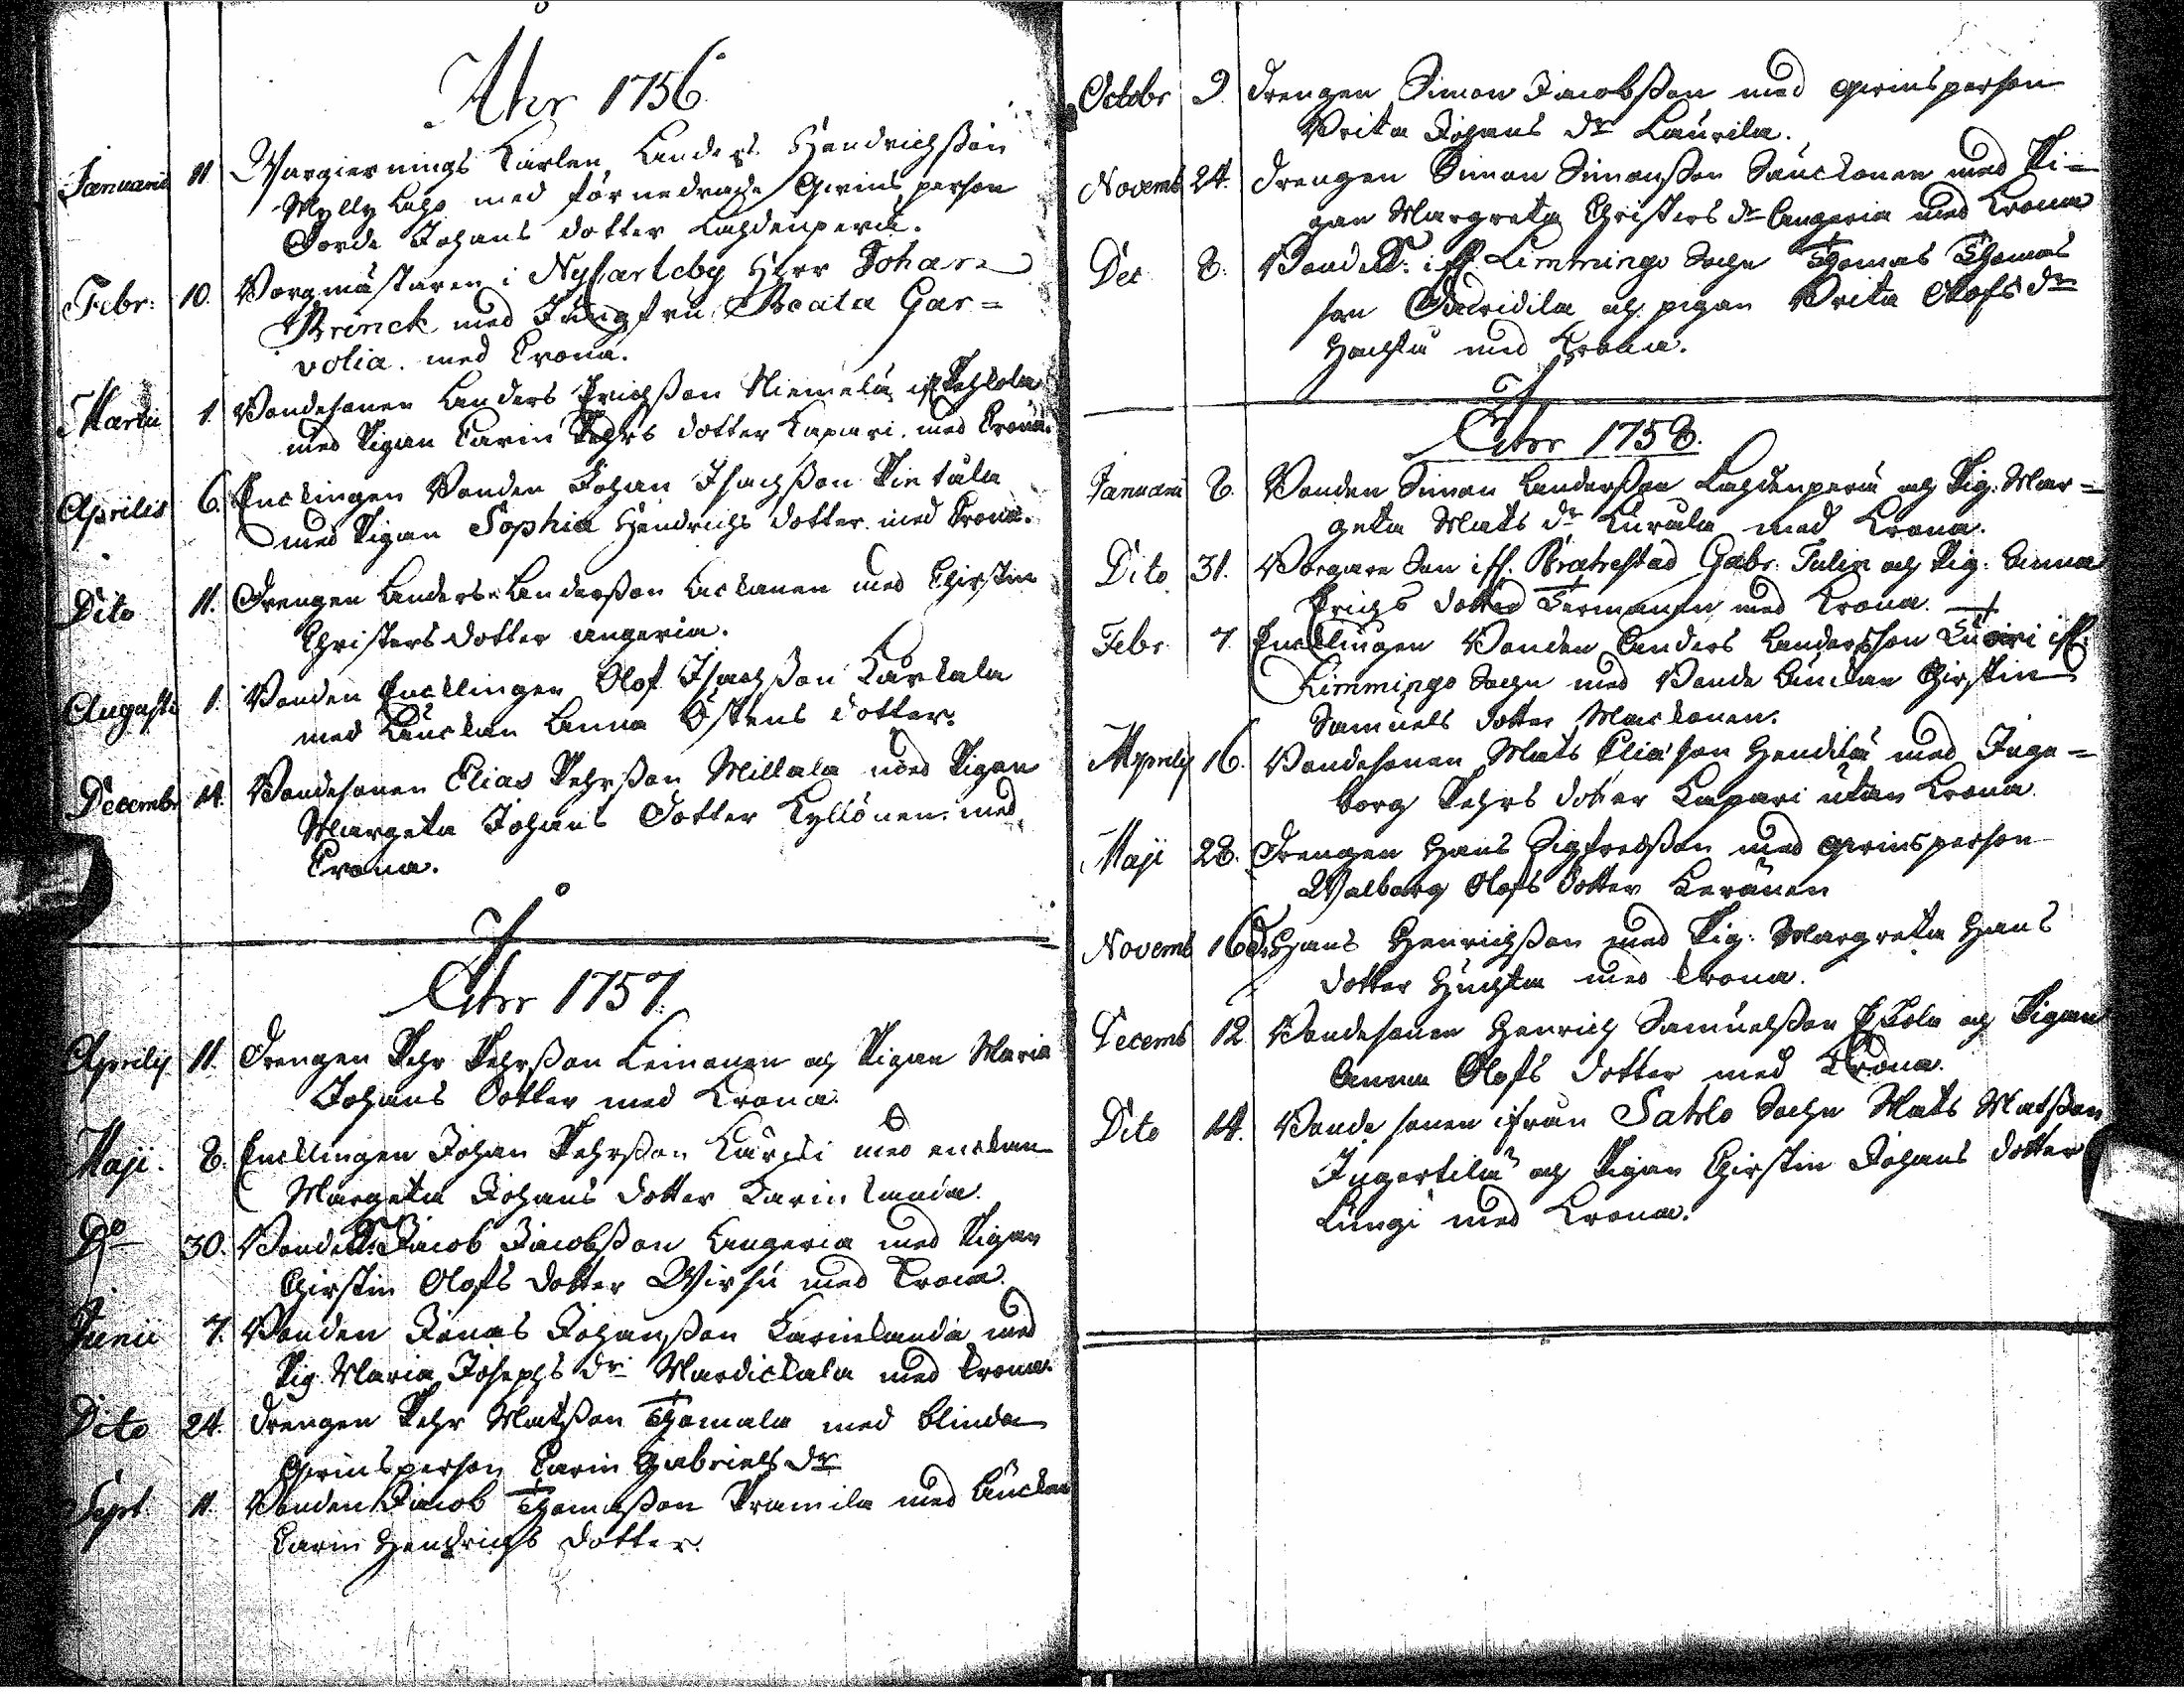 Åhr 1756.
Januarii 11 Wargiernings Karlen Anders Hendrichsson
Myllylaho med förnedrade qwins person
Dorde Johans dotter Lahdenperä.
Febr: 10. Borgmästaren i Nykarleby Herr Johan
Brinck med Jungfru Beata Gar=
volia. med Crona.
Martii 1 Bondesonen Anders Erichsson Niemelä
med Pigan Carin Pehrs dotter Kapari. med Crona.
Aprilis 6. Encklingen Bonden Johan Isachsson Pietula
med Pigan Sophia Hendrichs dotter med Crona.
Dito 11. Drengen Anders Andersson med Chirstin
Christers dotter angeria.
Augusti 1. Bonden Encklingen Olof Isachsson Karkala
med Änckan Anna Östens dotter.
Decembr 14. Bondesonen Elias Pehrsson Millala med Pigan
Margeta Johans Dotter Kyllönen. med
Crona.
Åhr 1757.
Aprilis 11. Drengen Pehr Pehrsson Leinonen och Pigan Maria
Johans Dotter med Krona.
Maji. 8. Encklingen Johan Pehrsson med enckan
Margeta Johans dotter Karin kanda.
Do 30. Bonden Jacob Jacobsson Angeria med Pigan
Chirstin Olofs dotter Wirsu med Crona.
Junii 7. Bonden Jonas Johansson Karinkanda med
Pig. Maria Josephs dr Mardickala med Crona.
Dito 24. Drengen Pehr Matsson Thomala med blinda
Qwinsperson Carin Gabriels dr
Sept. 11. Bonden Jacob Thomasson Pramila med Änckan
Carin Hendrichs dotter.
Octobr 9. Drengen Simon Jacobsson med qwinsperson
Brita Johans dr Laurila.
Novemb 24. Drengen Simon Simonsson Sauckonen med Pi=
gan Margreta Christers dr Angeria med Krona
Dec 8. Bonden if. Limmingo Sochn Thomas Thomas
son och pigan Brita Olofs dr
Huchta med Krona.
Åhr 1758.
Januarii 8. Bonden Simon Andersson Lahdenperä och Pig. Mar=
geta Mats dr Kurula med Krona.
Dito 31. Borgare Son if. Brahestad Gabr. Tulin och Pig. Anna
Erichs dotter Termonen med Krona.
Febr 7. Encklingen Bonden Anders Andersson if.
Limmingo Sochn med Bonde Änckan Chirstin
Samuels dotter Mackonen.
Aprilis 16. Bondesonen Mats Eliasson Hendilä med Inge=
borg Pehrs dotter Kapari utan Krona.
Maji 28. Drengen Hans Sigfredsson med qwinsperson
Walborg Olofs dotter Keränen
Novemb 16 Dr. Hans Henrichsson med Pig. Margreta Hans
dotter Huchta med Krona.
Decemb 12 Bondesonen Henrich Samuelsson Eskola och Pigan
Anna Olofs dotter med Krona.
Dito 14. Bonde sonen ifrån Sahlo Sochn Mats Matsson
Ingertilä och Pigan Chirstin Johans dotter
Kangi med Krona.